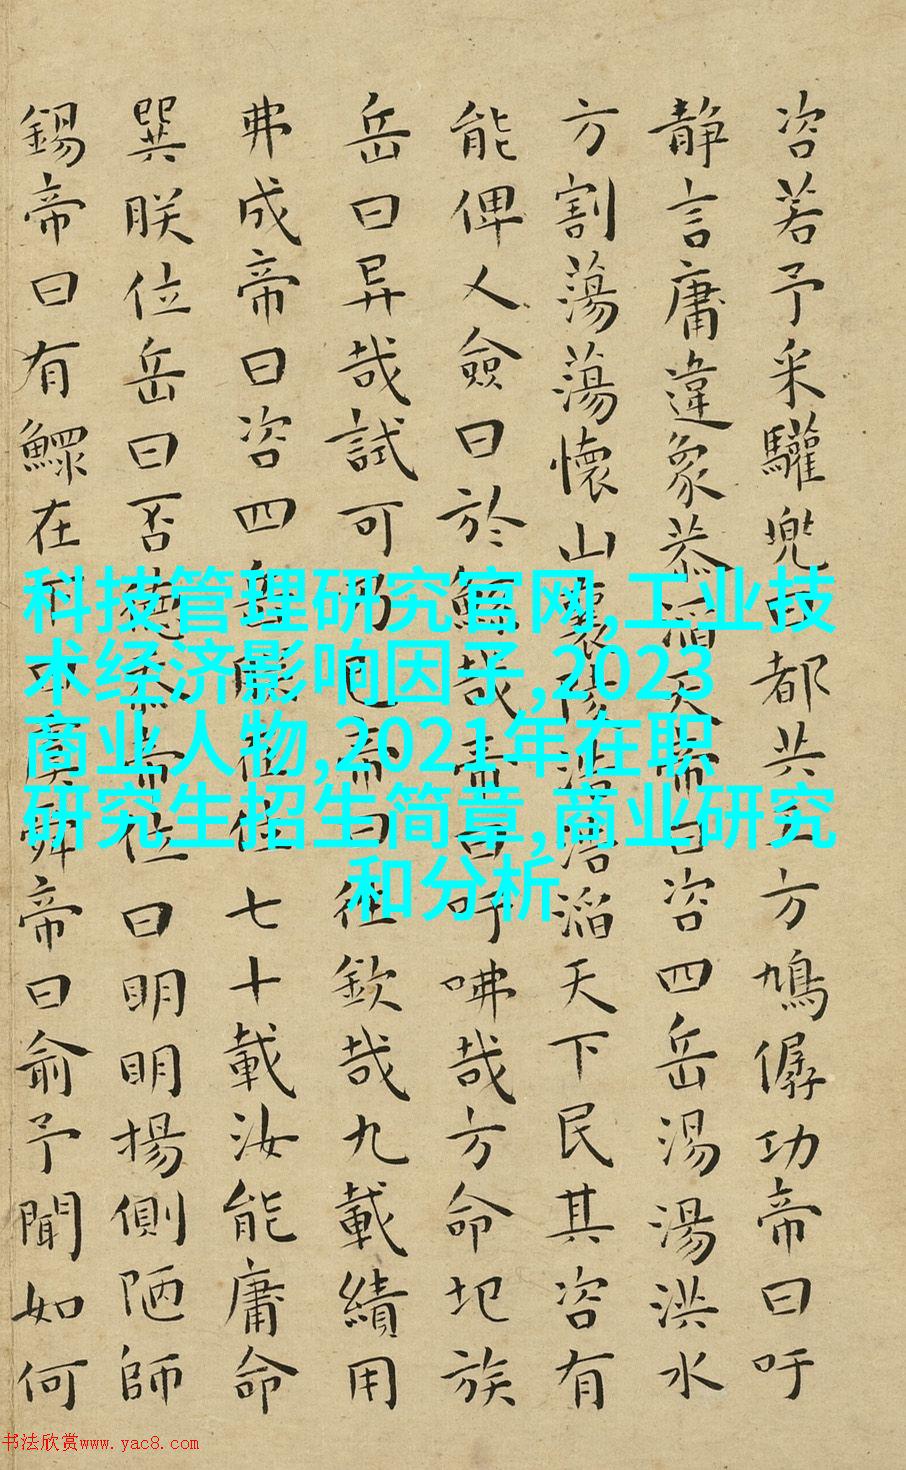 咨若予采驩兜曰都共工方鳩僝功帝曰吁
静言庸違象恭滔天帝曰咨四岳湯湯洪水
方割蕩蕩懷山襄陵浩浩滔天下民其咨有
能俾乂僉曰於鯀哉帝曰吁咈哉方命圮族
岳曰异哉試可乃已帝曰往欽哉九載績用
弗成帝曰咨四岳朕在位七十載汝能庸命
巽朕位岳曰否德忝帝位曰明明揚側陋師
錫帝曰有鰥在下曰虞舜帝曰俞予聞如何
科技管理研究官网,工业技
术经济影响因子,2023
商业人物,2021年在职
研究生招生简章,商业研究
和分析
书法欣赏www.yac8.com